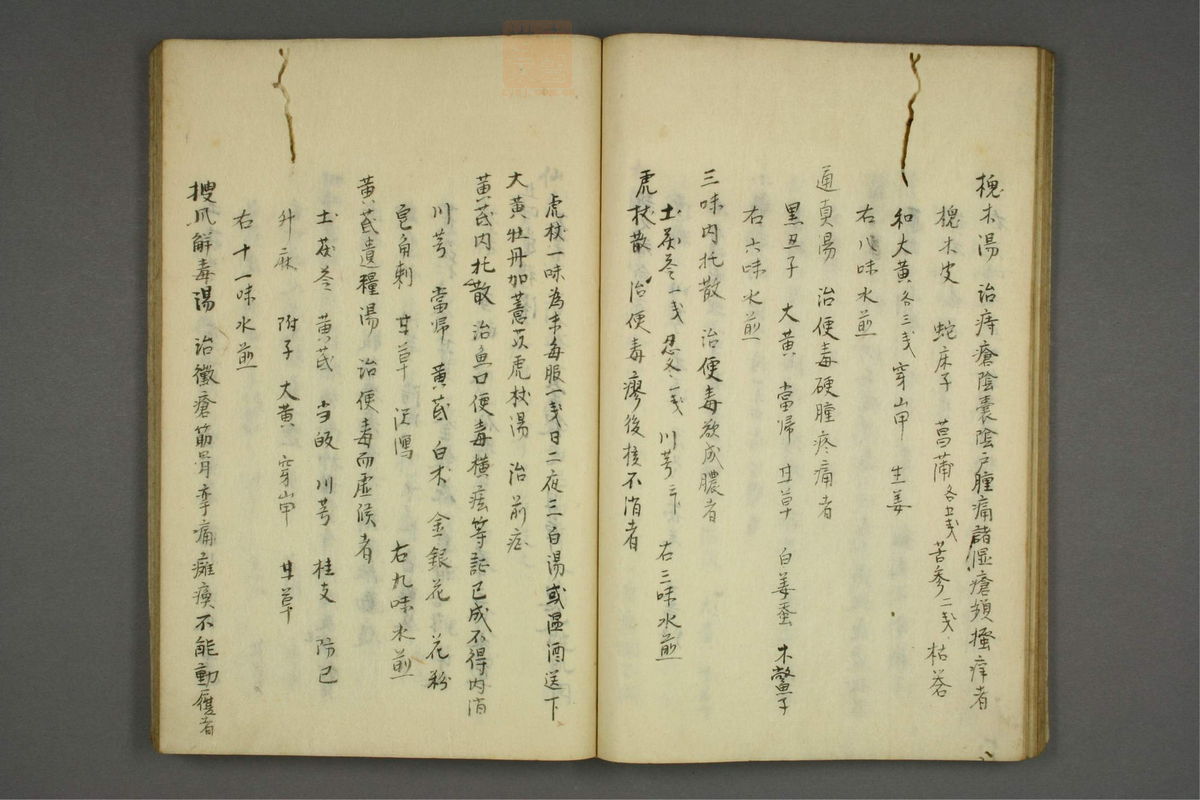 槐木湯　治痔瘡陰囊陰戸腫痛諸湿瘡頻搔痒者
槐木皮　蛇床子　菖蒲各五戋　苦參二戋　枯礬
和大黄各三戋　穿山甲　生姜
右八味水煎
通真湯　治便毒硬腫疼痛者
黒丑子　大黄　當帰　甘草　白姜蚕　木鱉子
右六味水煎
三味内托散　治便毒欲成膿者
土茯苓一戋　忍冬一戋　川芎　右三味水煎
虎杖散　治便毒瘳後核不消者
虎杖一味為末毎服一戋日二夜三白湯或温酒送下
大黄牡丹加薏苡虎杖湯　治前症
黄芪内托散　治魚口便毒横痃等証已成不得内消
川芎　當帰　黄芪　白朮　金銀花　花粉
皂角刺　甘草　沢瀉　右九味水煎
黄芪遺糧湯　治便毒而虚候者
土茯苓　黄芪　当皈　川芎　桂支　防已
升麻　附子　大黄　穿山甲　甘草
右十一味水煎
搜風解毒湯　治黴瘡筋骨孿痛癱瘓不能動履者